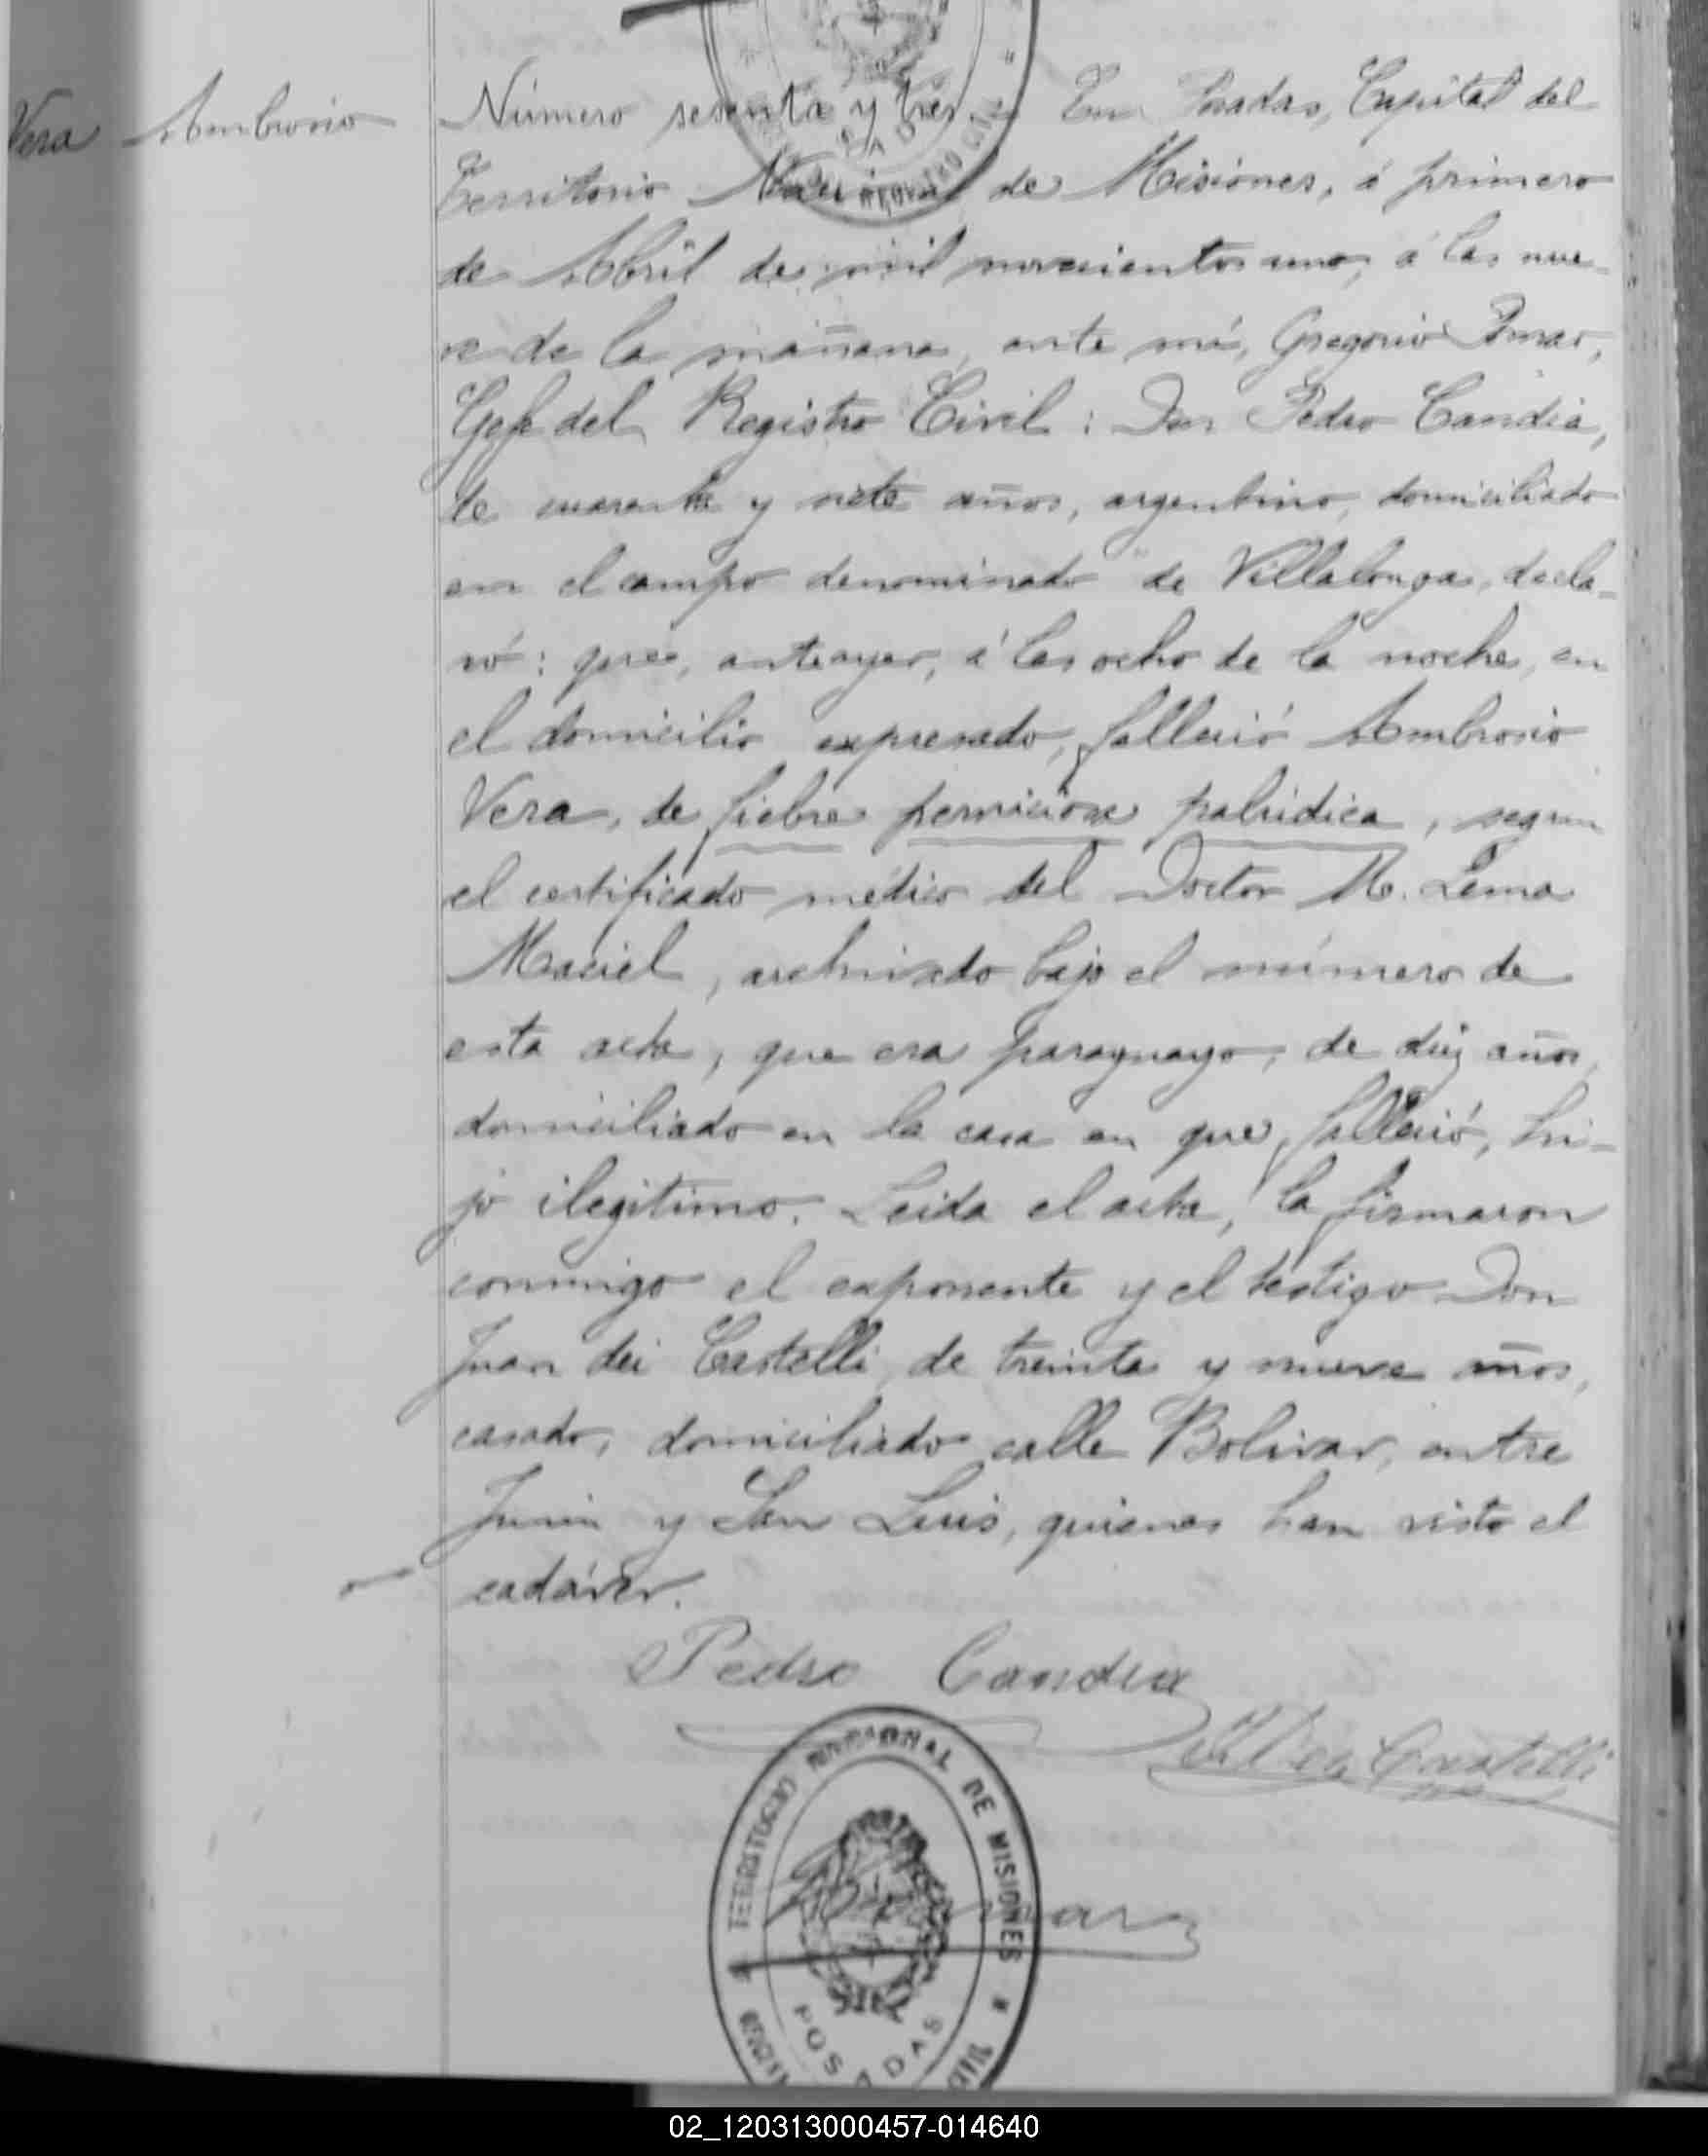 Vera Ambrosio
Número sesenta y tres En Posadas, Capital del
Territorio Nacional de Misiones, á primero
de Abril de mil novecientos uno, á las nue-
ve de la mañana, ante mí, Gregorio Pomar,
Gefe del Registro Civil: Don Pedro Candia,
de cuarenta y siete años, argentino, domiciliado
en el campo denominado "de Villalonga, decla-
ró: que, anteayer, á las ocho de la noche, en
el domicilio expresado, falleció Ambrosio
Vera, de fiebre perniciosa palúdica, segun
el certificado médico del Doctor M. Lema
Maciel, archivado bajo el número de
esta acta, que era paraguayo, de diez años,
domiciliado en la casa en que falleció, hi-
jo ilegitimo. Leida el acta, la firmaron
conmigo el exponente y el testigo Don
Juan dei Castelli, de treinta y nueve años,
casado, domiciliado calle Bolivar, entre
Junin y San Luis, quienes han visto el
cadáver.
Pedro Candia
J. Dei Castelli
TERRITORIO NACIONAL DE MISIONES
POSADAS
02_120313000457-014640